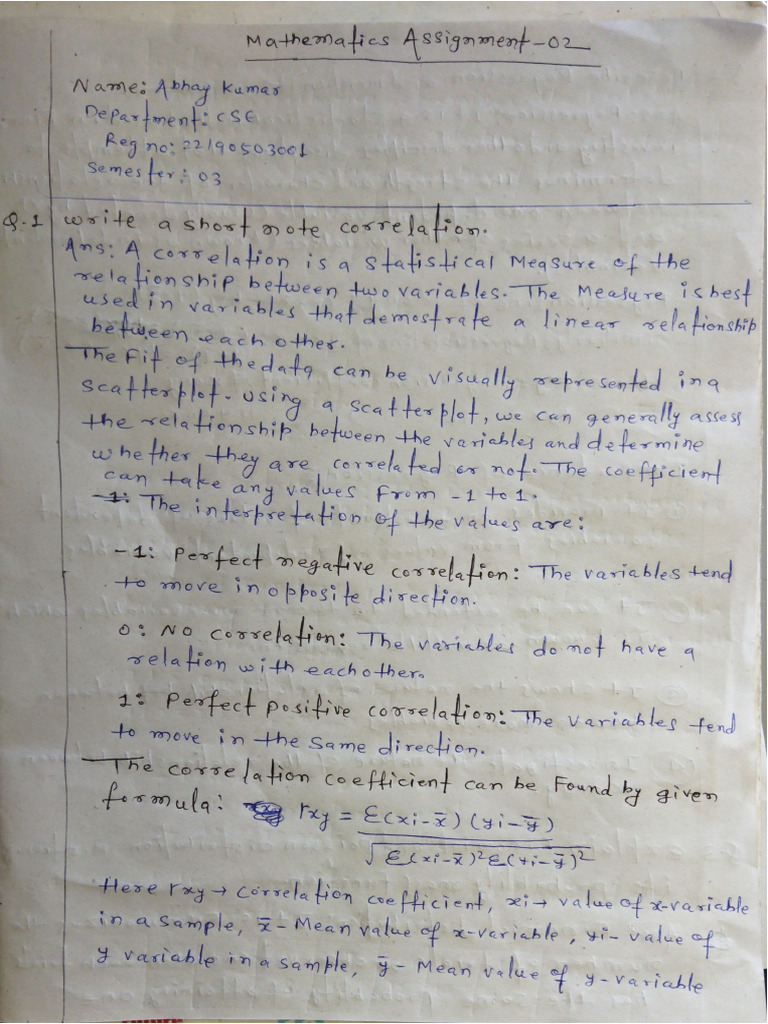 Mathematics Assignment-02
Name: Abhay Kumar
Department: CSE
Reg no: 22190503001
Semester: 03
Q.1 Write a short note correlation.
Ans: A correlation is a statistical Measure of the
relationship between two variables. The Measure is best
used in variables that demostrate a linear relationship
between each other.
The Fit of the data can be visually represented in a
scatterplot. Using a scatterplot, we can generally assess
the relationship between the variables and determine
whether they are correlated or not. The coefficient
can take any values From -1 to 1.
The interpretation of the values are:
-1: Perfect negative correlation: The variables tend
to move in opposite direction.
0: No correlation: The variables do not have a
relation with each other.
1: Perfect positive correlation: The variables tend
to move in the same direction.
The correlation coefficient can be Found by given
formula: rxy = Σ(xi-x̄) (yi-ȳ)
√Σ(xi-x̄)²Σ(yi-ȳ)²
Here rxy → correlation coefficient, xi → value of x-variable
in a sample, x̄ - Mean value of x-variable, yi - value of
y variable in a sample, ȳ - Mean value of y-variable